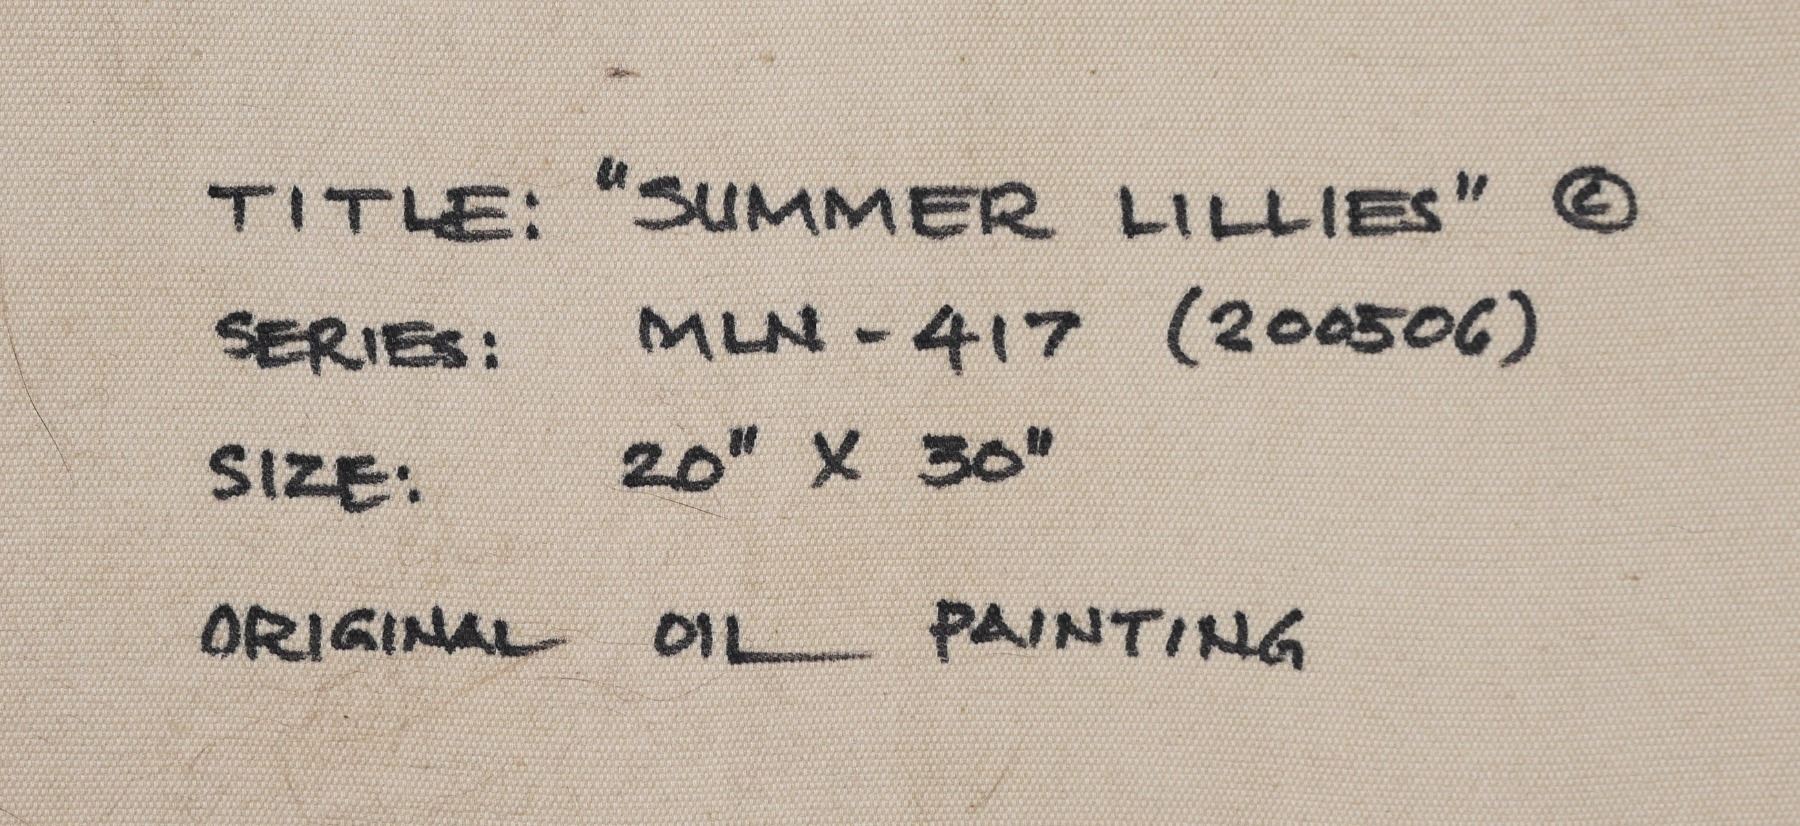 TITLE: "SUMMER LILLIES" ©
SERIES: MLN-417 (200506)
SIZE: 20" X 30"
ORIGINAL OIL PAINTING